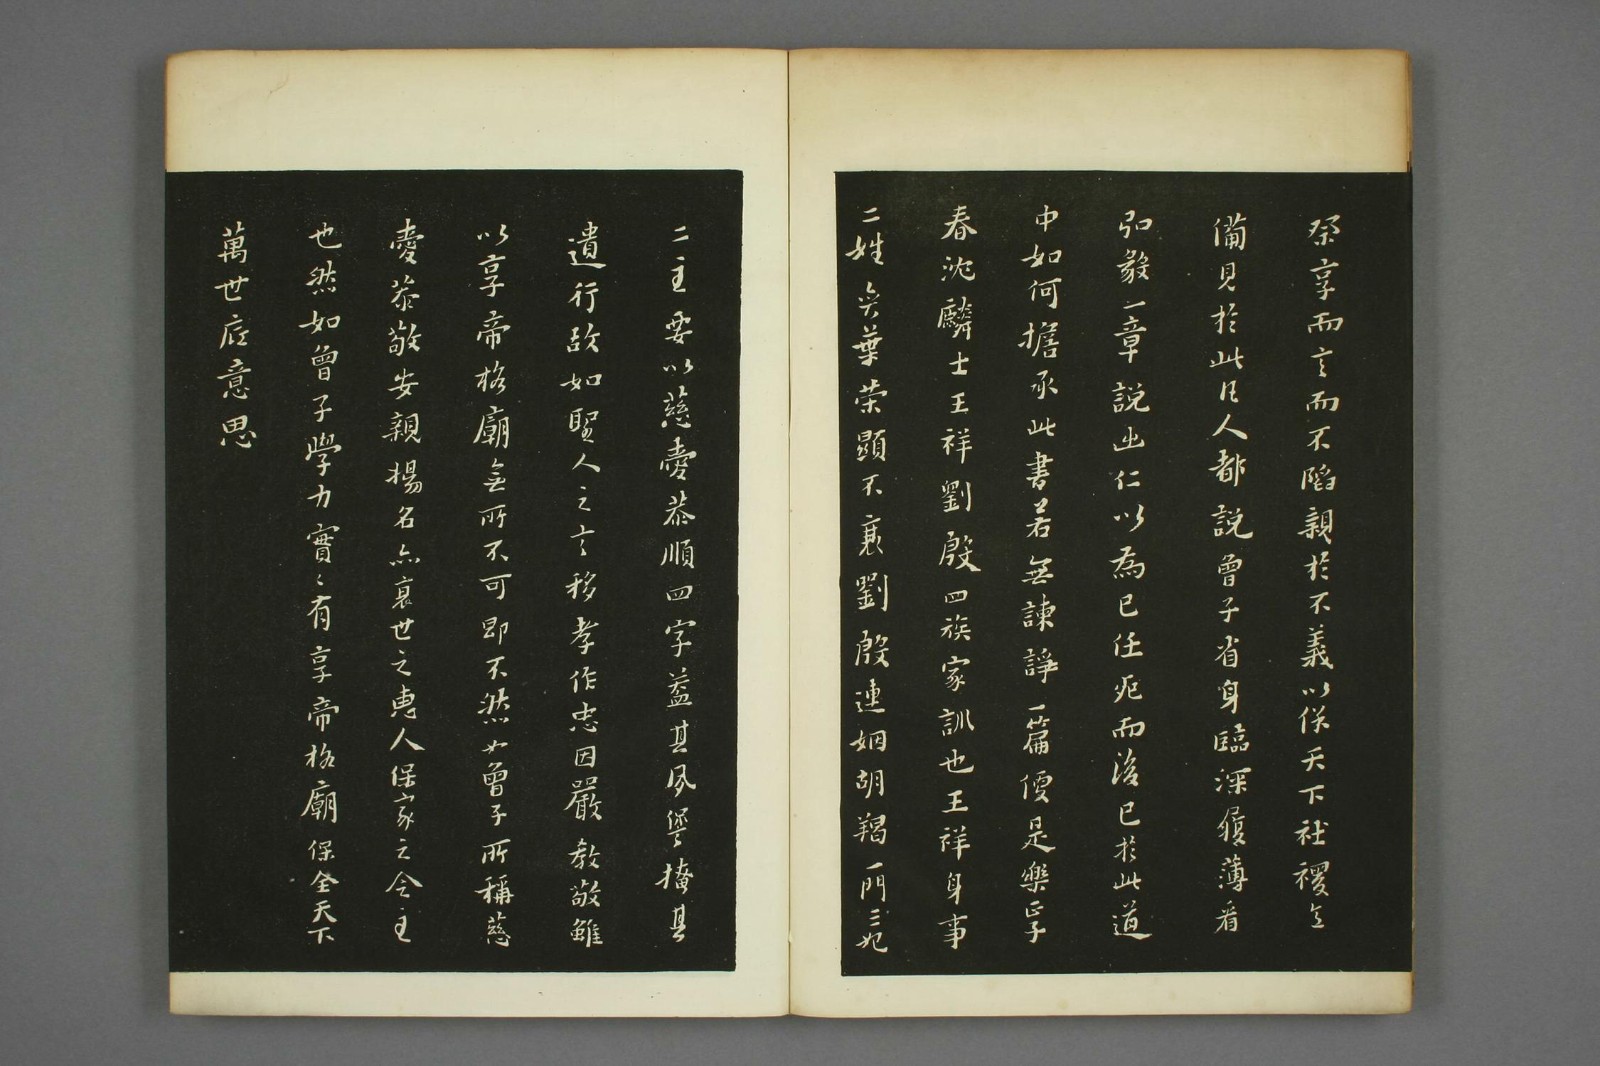 祭享而言而不陷親於不義以保天下社稷之
備見於此凡人都說曾子省身臨深履薄看
弘毅一章說出仁以為己任死而後已於此道
中如何擔承此書若無諫諍一篇便是樂正子
春沈驎士王祥劉殷四族家訓也王祥身事
二姓奕葉榮顯不衰劉殷連姻胡羯一門三妃
二主要以慈愛恭順四字蓋其夙譽掩其
遺行故如聖人之言移孝作忠因嚴教敬雖
以享帝格廟無所不可即不然如曾子所稱慈
愛恭敬安親揚名亦衰世之惠人保家之令主
也然如曾子學力實實有享帝格廟保全天下
萬世底意思